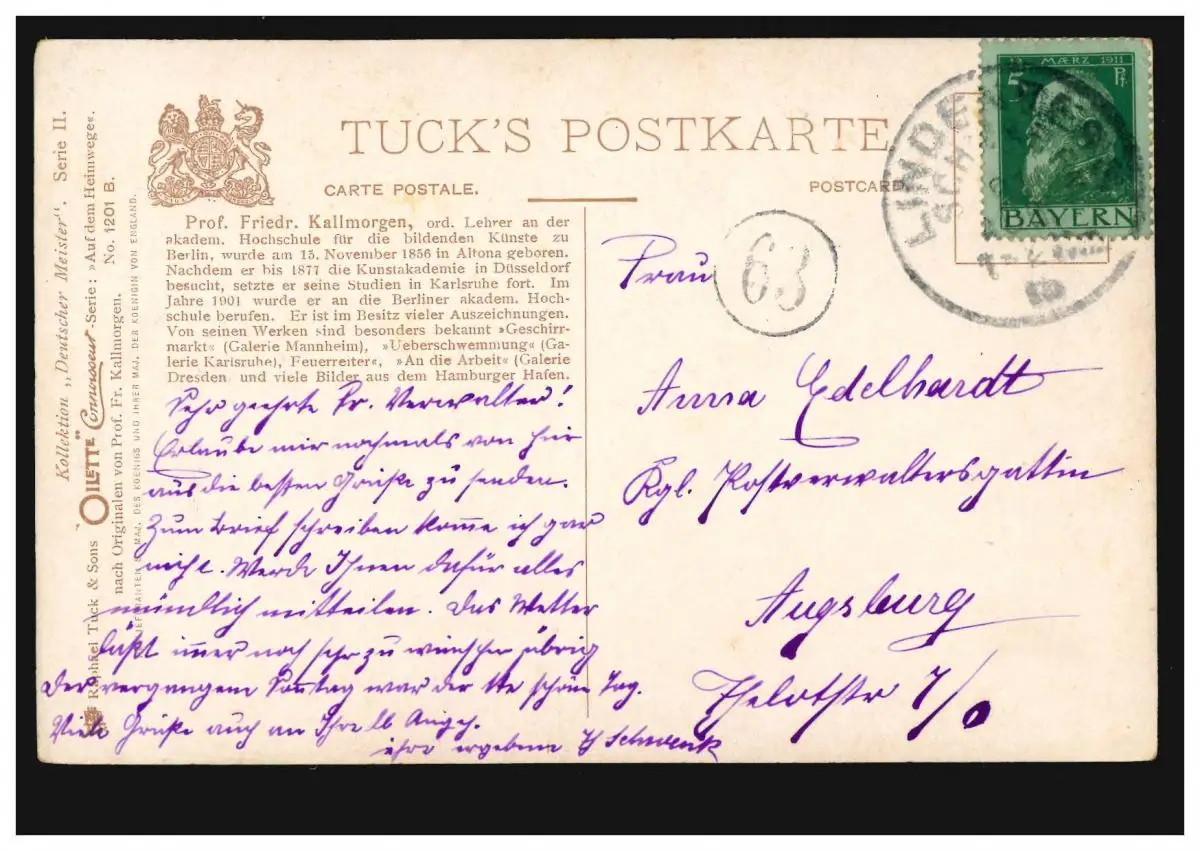 Kollektion „Deutscher Meister". Serie II.
Raphael Tuck & Sons "OILETTE" Connoisseur-Serie: »Auf dem Heimwege«.
nach Originalen von Prof. Fr. Kallmorgen. No. 1201 B.
S. MAJ. DES KOENIGS UND IHRER MAJ. DER KOENIGIN VON ENGLAND.
TUCK'S POSTKARTE
CARTE POSTALE.
POSTCARD
Prof. Friedr. Kallmorgen, ord. Lehrer an der
akadem. Hochschule für die bildenden Künste zu
Berlin, wurde am 15. November 1856 in Altona geboren.
Nachdem er bis 1877 die Kunstakademie in Düsseldorf
besucht, setzte er seine Studien in Karlsruhe fort. Im
Jahre 1901 wurde er an die Berliner akadem. Hoch-
schule berufen. Er ist im Besitz vieler Auszeichnungen.
Von seinen Werken sind besonders bekannt »Geschirr-
markt« (Galerie Mannheim), »Ueberschwemmung« (Ga-
lerie Karlsruhe), Feuerreiter«, »An die Arbeit« (Galerie
Dresden und viele Bilder aus dem Hamburger Hafen.
Sehr geehrte Fr. Verwalter!
Erlaube mir nochmals von hier
aus die besten Grüße zu senden.
Zum Brief schreiben komme ich gar
nicht. Werde Ihnen dafür alles
mündlich mitteilen. Das Wetter
läßt immer noch sehr zu wünschen übrig
Der vergangene Sonntag war der 1te schöne Tag.
Viele Grüße auch an Ihre lb Angeh.
ihre ergebene Schwenk
5 MÆRZ 1911 Pf.
BAYERN
LINDE
63
Frau
Anna Edelhardt
Kgl. Postverwaltersgattin
Augsburg
Thelottstr 7/0